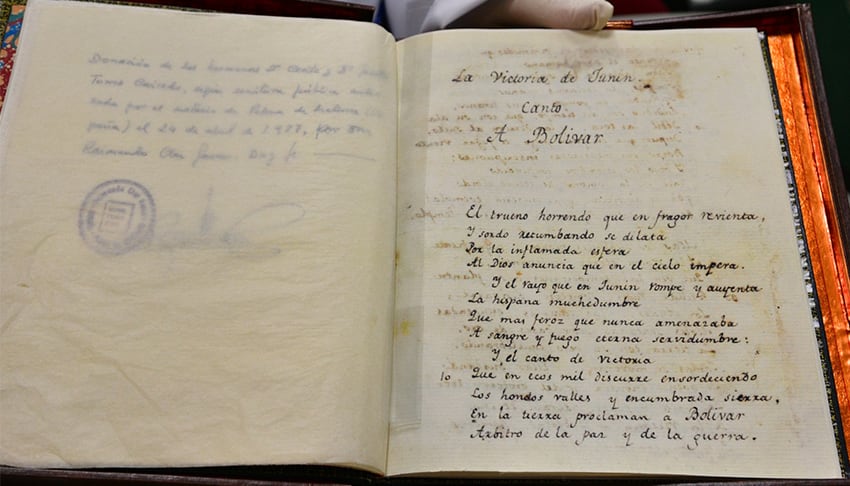 Donación de los hermanos Dn Carlos y Dn
Tomo Caicedo, según escritura pública
por el notario de Palma de Mallorca
el 24 de abril de 1.977, por Don
La Victoria de Junin.
Canto
A Bolivar.
El trueno horrendo que en fragor revienta,
Y sordo retumbando se dilata
Por la inflamada esfera
Al Dios anuncia que en el cielo impera.
Y el rayo que en Junin rompe y auyenta
La hispana muchedumbre
Que mas feroz que nunca amenazaba
A sangre y fuego eterna servidumbre:
Y el canto de victoria
10 Que en ecos mil discurre ensordeciendo
Los hondos valles y encumbrada sierra,
En la tierra proclaman à Bolivar
Arbitro de la paz y de la guerra.